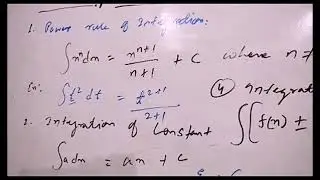 1. Power rule of Integration:
∫xⁿdx = xⁿ⁺¹/n+1 + C where n ≠
Ex: ∫t²dt = t²⁺¹/2+1
④ Integrat
2. Integration of Constant ∫[f(x) ±
∫adx = ax + C